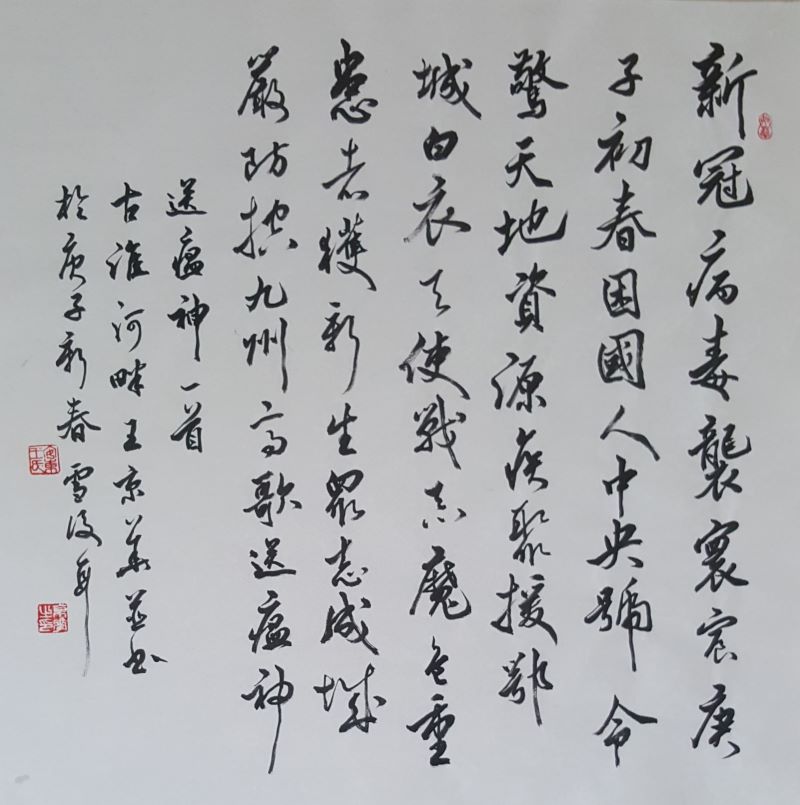 新冠病毒襲寰宸庚
子初春困國人中央號令
驚天地資源疾聚援鄂
城白衣天使戰魔危重
患者獲新生眾志成城
嚴防控九州高歌送瘟神
送瘟神一首
古淮河畔王京華並書
於庚子新春雪後